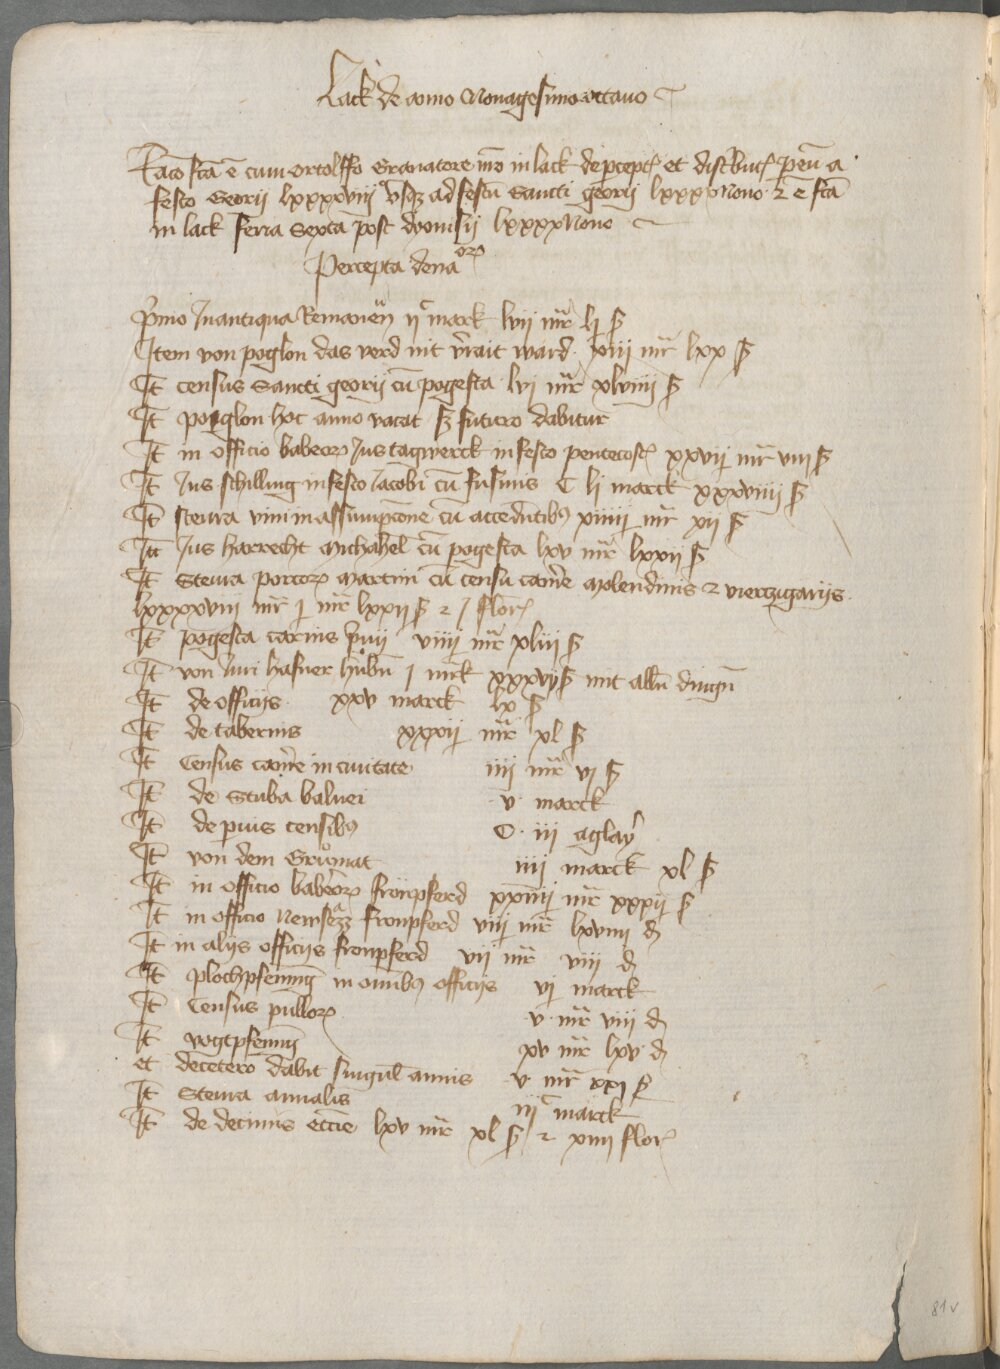 Lack de anno Nonagesimooctauo
Raco fca e cum Ortolffo Granatore mo in lack de pcept et distbut p eu a
festo Georij lxxxxviij vsqz ad festu Sancti georij lxxxxNono 2 e fca
in lack feria Sexta post dyonisij lxxxxNono
Percepta dena orz
Pmo In antiqua Remanen ij c marck lvii mr li ₰
Item von poglon das verd nit vrait ward xvij mr lxx ₰
It census Sancti georij cu pogesta lvj mr xlviiij ₰
It poglon hoc anno vacat sz futuro dabitur
It in officio babeorz Jus tagwerck in festo pentecost xxvij mr viij ₰
It Jus schilling in festo Jacobi cu fusinis C lj marck xxxviiij ₰
It steura vini in assumpcone cu accedntibz xiiiij mr xij ₰
Itt Jus harrecht Michahel cu pogesta lxv mr lxxij ₰
It Steura porcorz Martini cu censu came Molendinis 2 viertzigarijs
lxxxxviij mr j mr lxxij ₰ 2 j flor
It pogesta carnis viiij mr xliij ₰
It von Juri hafner hubn j mrk xxxvij ₰ mit alln dingn
It de officijs xxv marck lx ₰
It de tabernis xxxij mr xl ₰
It Census came in ciuitate iiij mr vj ₰
It de Stuba balnei v marck
It de puis censibz C iij aglay
It von dem Gruomat iiij marck xl ₰
It in officio babeorz fronpferd xxiiij mr xxxij ₰
It in officio Newsezz fronpferd viij mr lxviiij d
It in alijs officijs fronpferd vij mr viij d
It plochpfenning in omibz officijs vj marck
It Census pullorz v mr viij d
It vogtpfennig xv mr lxv d
et decetero dabit singul annis v mr xxj ₰
It Steura annalis iij c marck
It de decimis eccie lxv mr xl ₰ 2 xiiij flor
81v